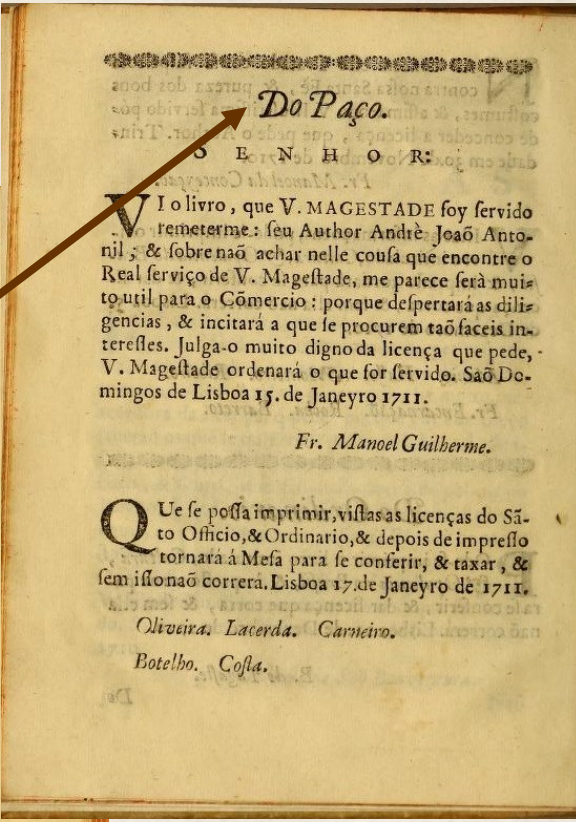 Do Paço.
S E N H O R:
VI o livro, que V. MAGESTADE foy ſervido
remeterme: ſeu Author Andrè Joaõ Anto-
nil; & ſobre naõ achar nelle couſa que encontre o
Real ſerviço de V. Mageſtade, me parece ſerà mui-
to util para o Cõmercio: porque deſpertará as dili-
gencias, & incitará a que ſe procurem taõ faceis in-
tereſſes. Julga-o muito digno da licença que pede,
V. Mageſtade ordenará o que for ſervido. Saõ Do-
mingos de Lisboa 15. de Janeyro 1711.
Fr. Manoel Guilherme.
QUe ſe poſſa imprimir, viſtas as licenças do Sã-
to Officio, & Ordinario, & depois de impreſſo
tornará á Meſa para ſe conferir, & taxar, &
ſem iſſo naõ correrá. Lisboa 17. de Janeyro de 1711.
Oliveira. Lacerda. Carneiro.
Botelho. Coſta.